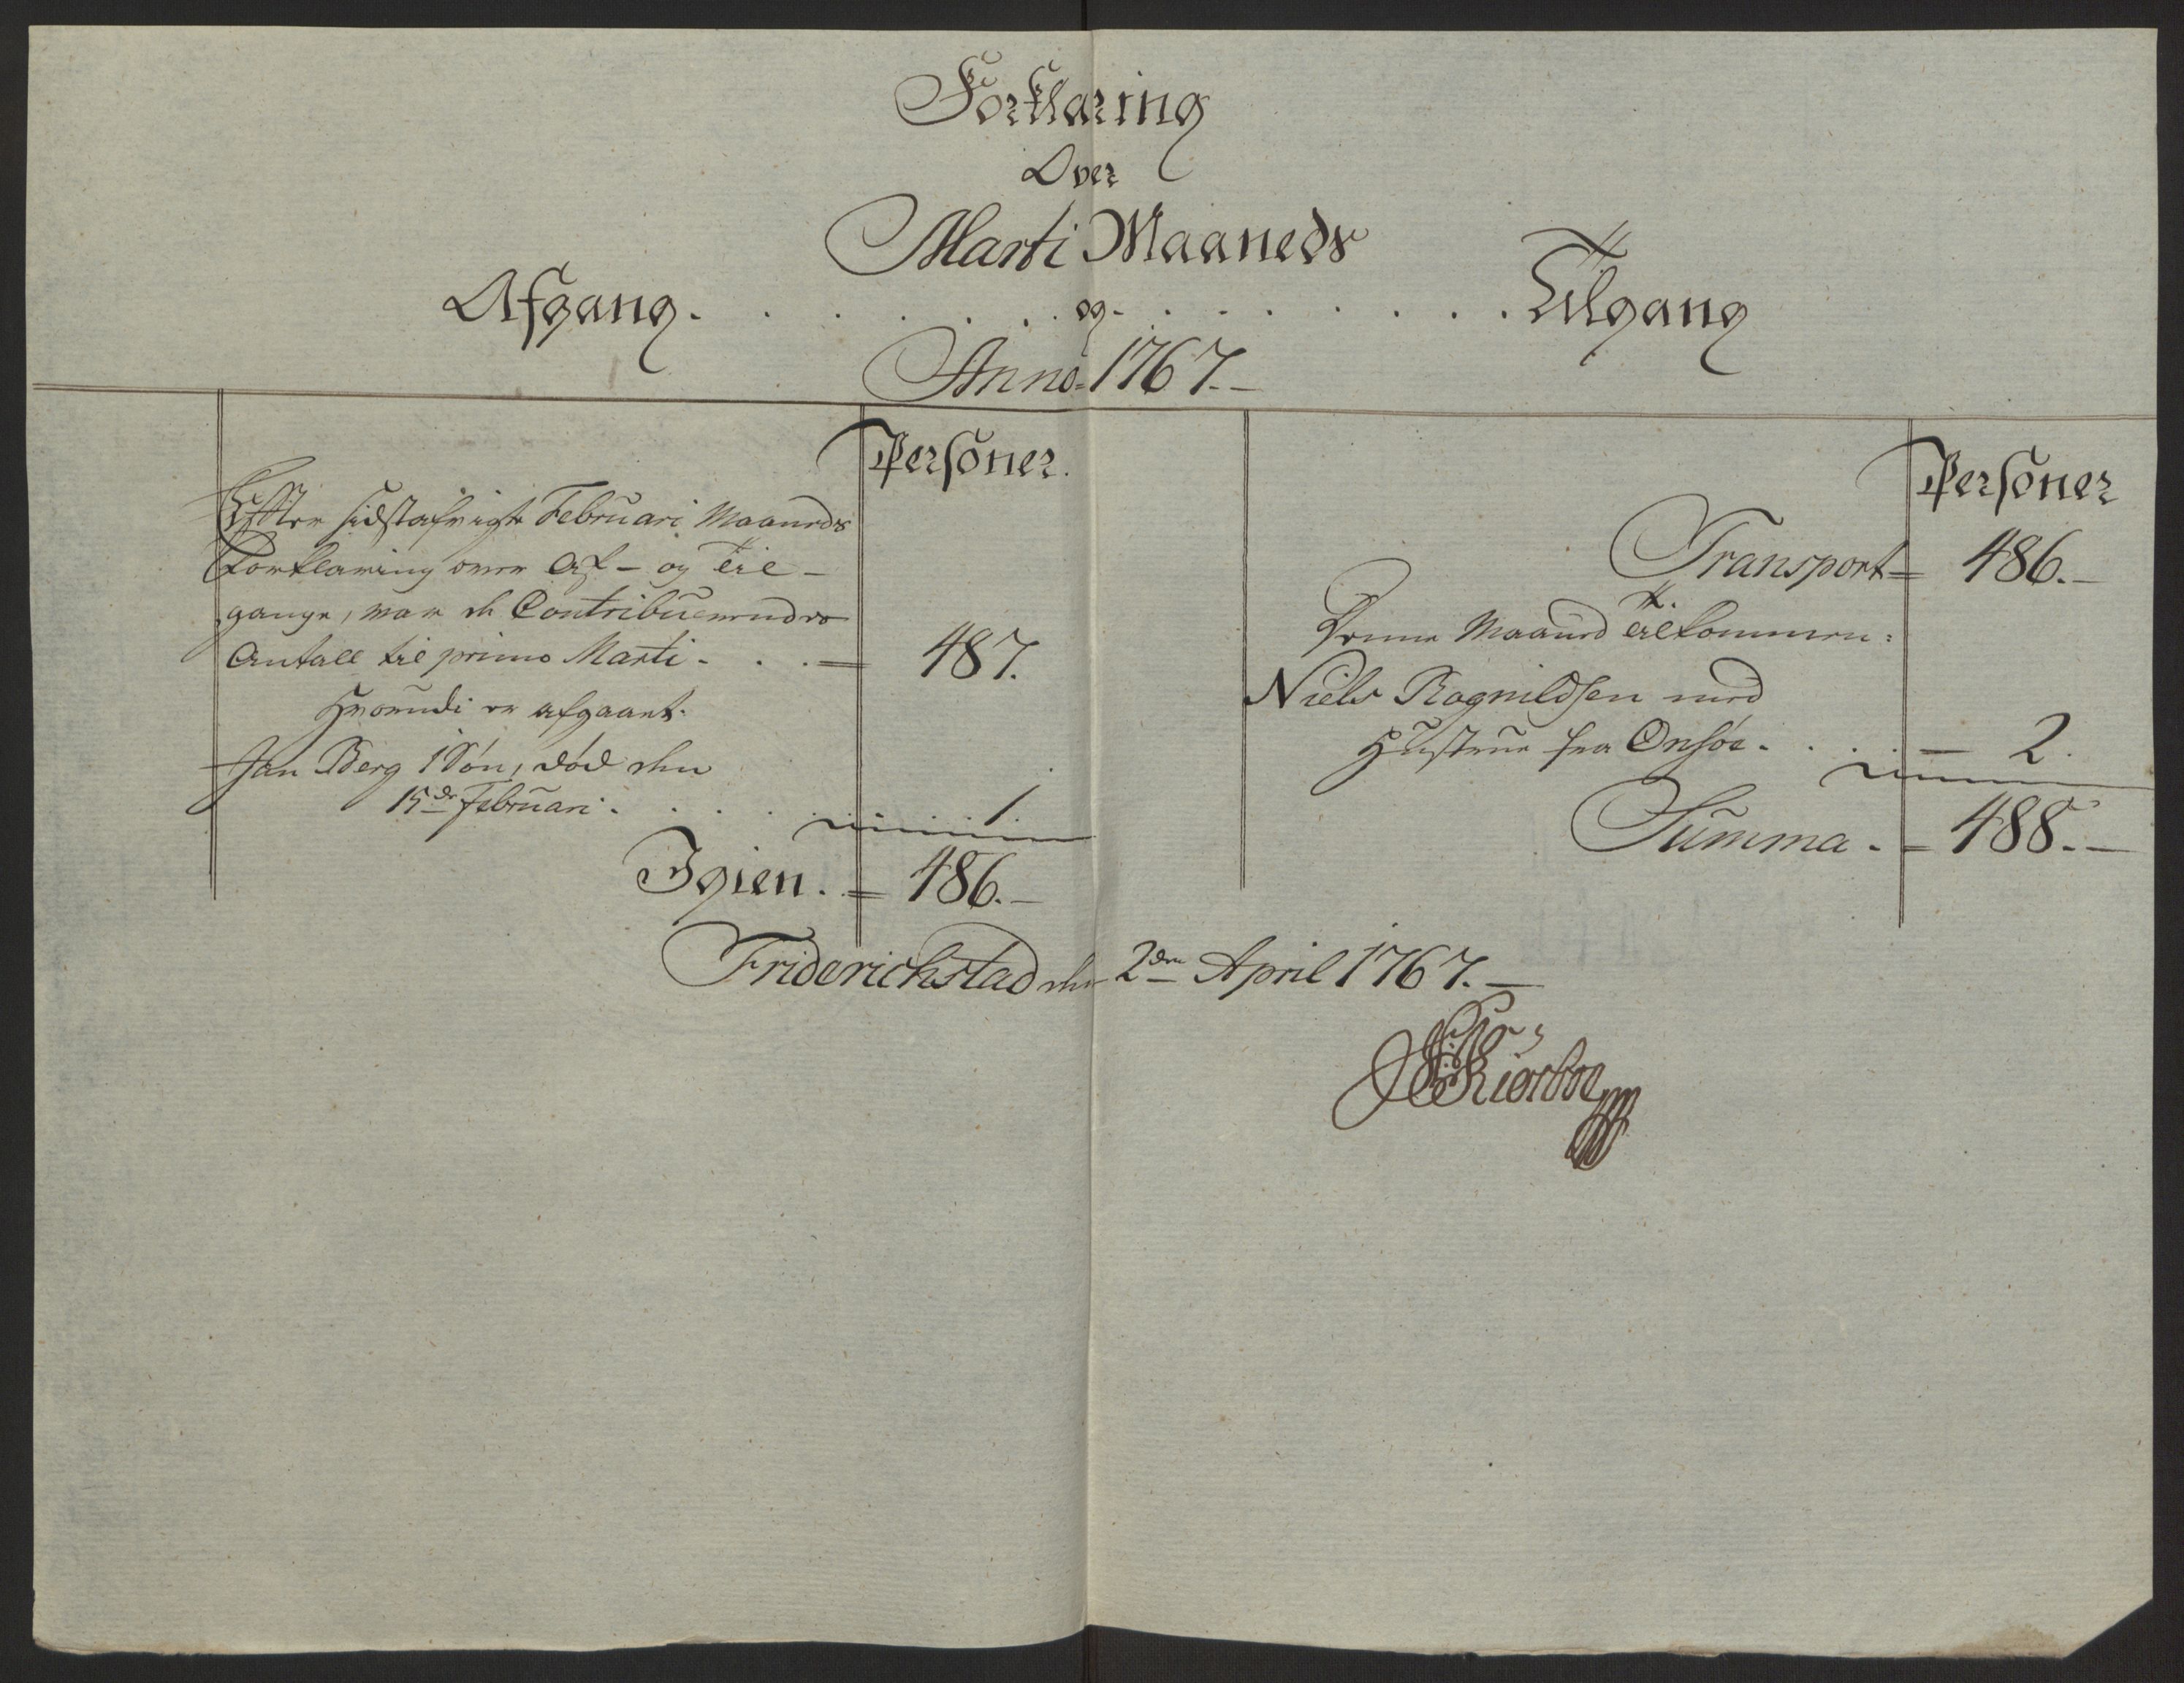 Forklaring
Over
Marti Maaneds
Afgang. . . . . . . og . . . . . . . Tilgang
Anno 1767.-
Personer.
Effter sidstafvigte Februari Maaneds
Forklaring over Af- og Til-
gange, var de Contribuerendes
Antall til primo Marti - . . = 487.
Hvorudi er afgaaet.
Jan Berg 1 Søn, død den
15de Februari . . . . . 1.
Igien. = 486.-
Personer
Transport = 486.-
Denne Maaned tilkommen:
Niels Rognildsen med
Hustrue fra Onsøe . . . - 2.
Summa. - 488.-
Friderichstad den 2den April 1767.-
Kiørboe